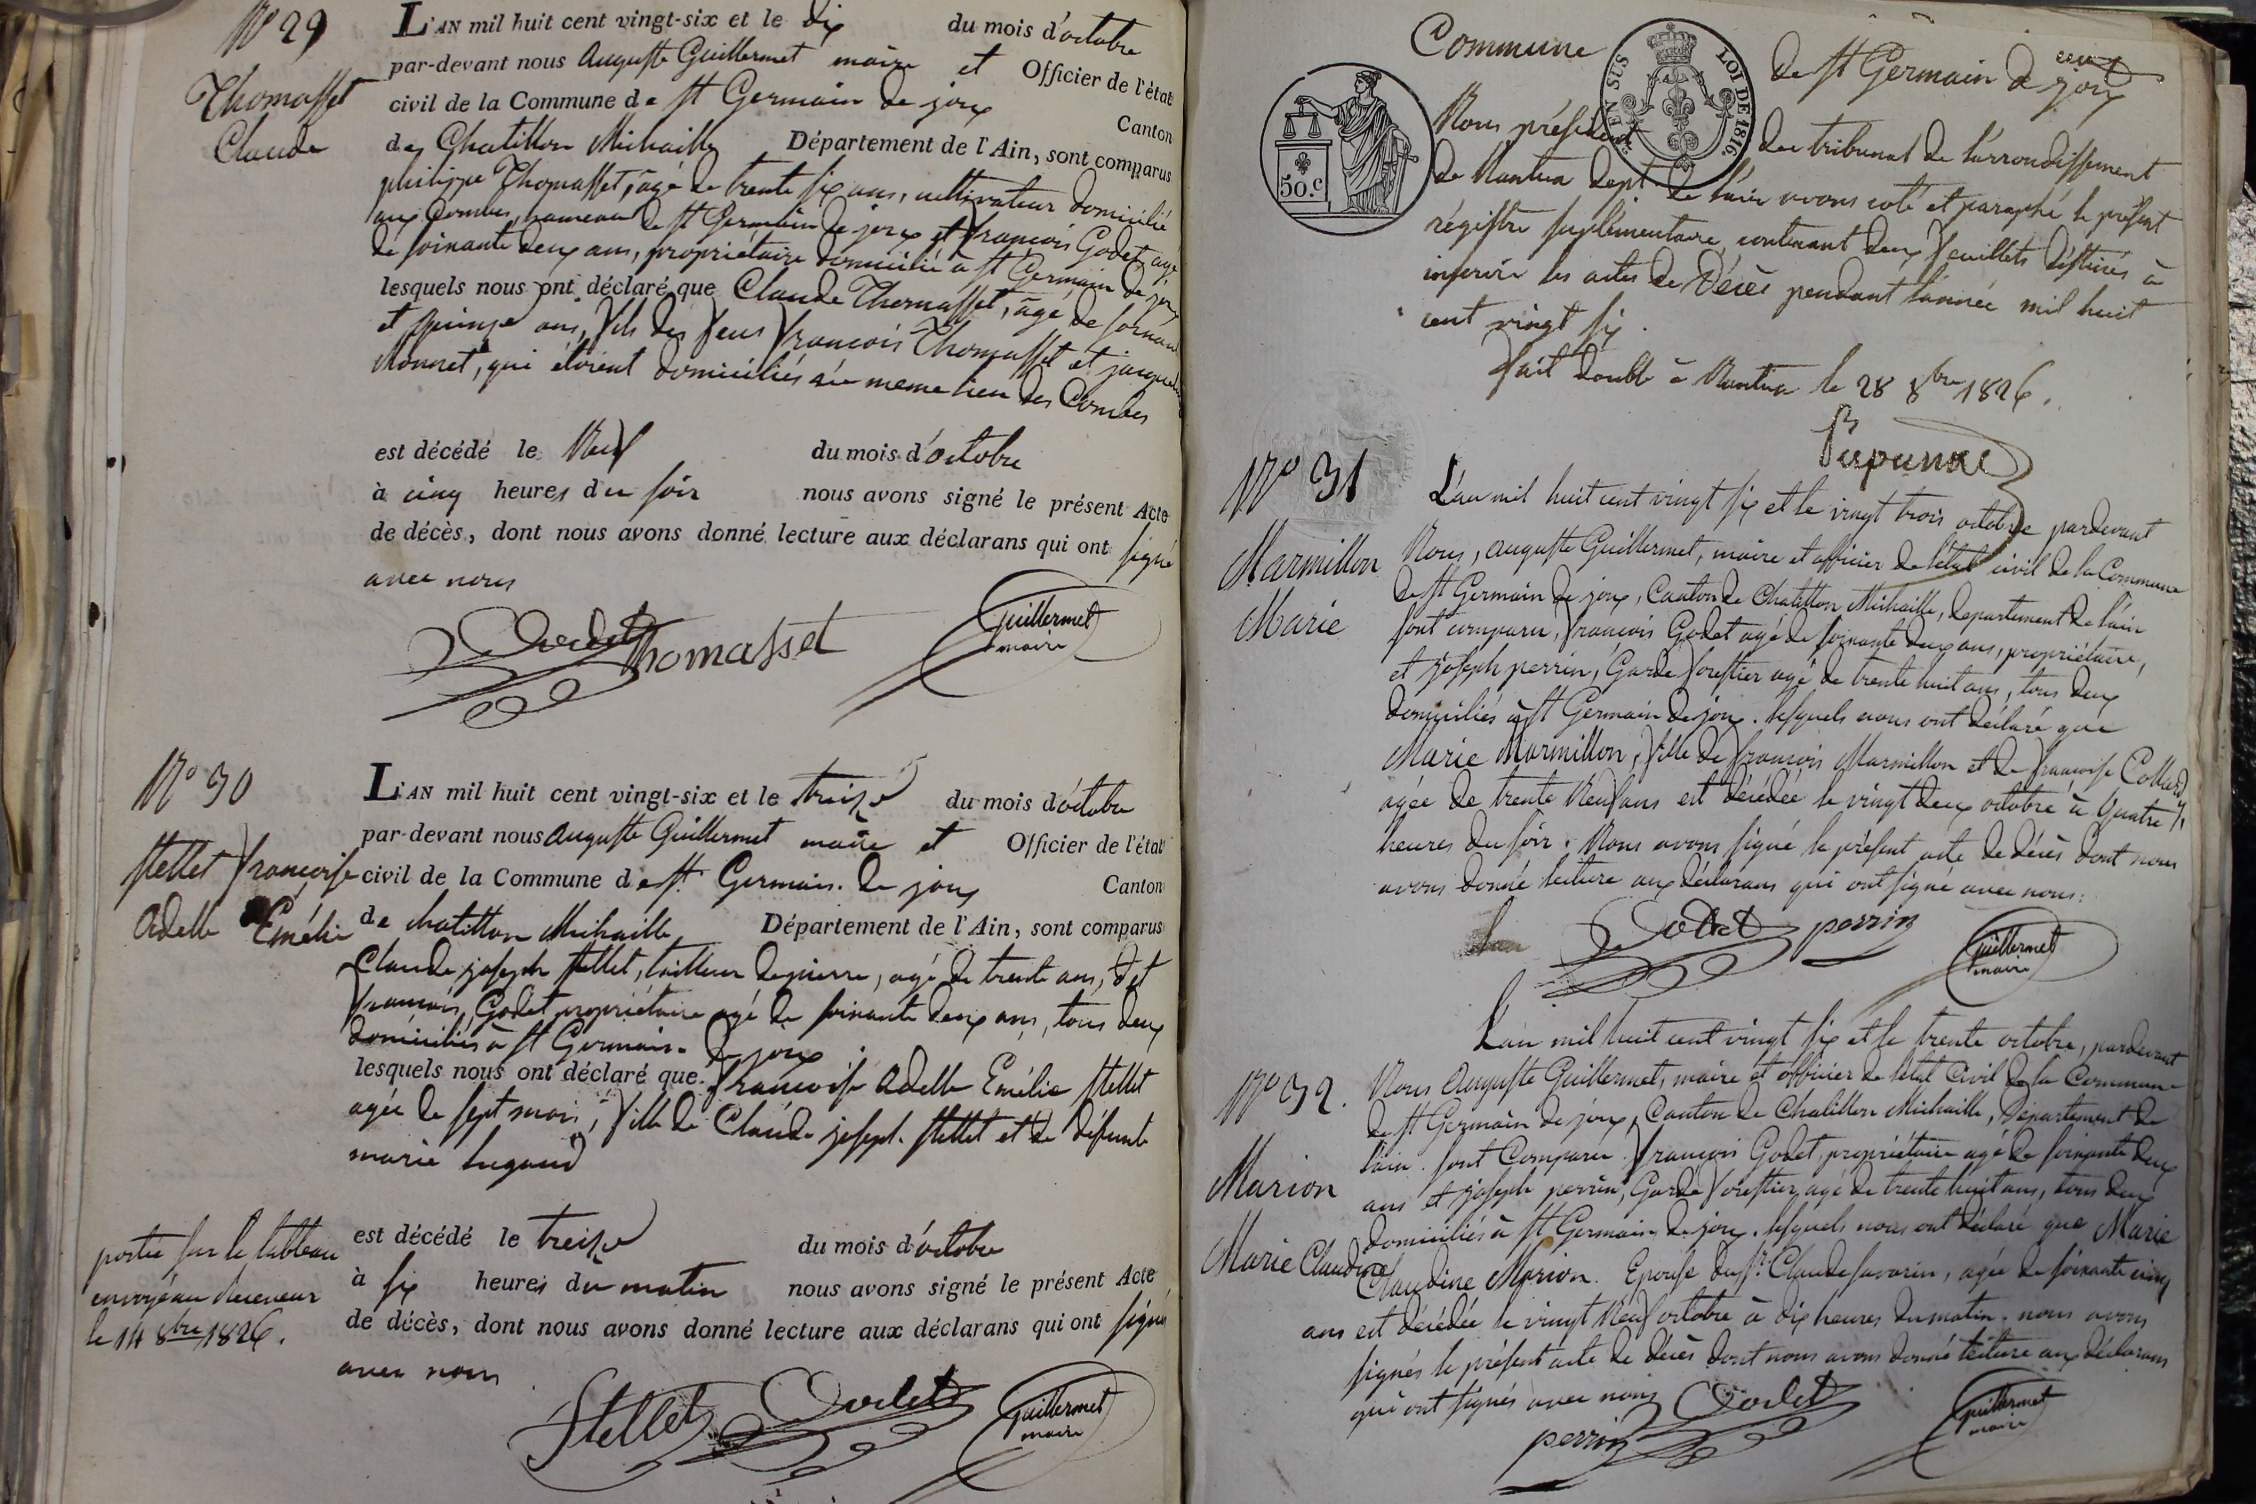 Nº 29
Thomasset
Claude
L'AN mil huit cent vingt-six et le dix du mois d'octobre
par-devant nous auguste Guillermet maire et Officier de l'état
civil de la Commune de St Germain de joux Canton
de Chatillon Michaille Département de l'Ain, sont comparus
philippe Thomasset, agé de trente six ans, cultivateur domicilié
aux Combes, hameau de St Germain de joux et françois Godet agé
de soixante deux ans, propriétaire domicilié à St Germain de joux
lesquels nous ont déclaré que Claude Thomasset, agé de soixante
et quinze ans, fils des feus françois Thomasset et jacqueline
Monnet, qui étoient domiciliés au meme lieu des Combes
est décédé le Neuf du mois d'octobre
à cinq heures du soir nous avons signé le présent Acte
de décès, dont nous avons donné lecture aux déclarans qui ont signé
avec nous
Godet Thomasset Guillermet
maire
Nº 30
Stellet françoise
Adelle Emélie
L'AN mil huit cent vingt-six et le treize du mois d'octobre
par-devant nous auguste Guillermet maire et Officier de l'état
civil de la Commune de St Germain de joux Canton
de chatillon Michaille Département de l'Ain, sont comparus
Claude joseph Stellet, tailleur de pierre, agé de trente ans, et
françois Godet propriétaire agé de soixante deux ans, tous deux
domiciliés à St Germain de joux
lesquels nous ont déclaré que françoise Adelle Emélie Stellet
agée de sept mois, fille de Claude joseph Stellet et de défunte
marie lugand
portée sur le tableau
envoyé au Receveur
le 14 8bre 1826.
est décédé le treize du mois d'octobre
à six heures du matin nous avons signé le présent Acte
de décès, dont nous avons donné lecture aux déclarans qui ont signé
avec nous
Stellet Godet Guillermet
maire
Commune de St Germain de joux
EN SUS LOI DE 1816.
50.c
Nous président du tribunal de l'arrondissement
de Nantua dept. de l'ain avons coté et paraphé le présent
régistre suplémentaire contenant deux feuillets déstinés à
inscrire les actes de Décès pendant l'année mil huit
cent vingt six.
fait double à Nantua le 28 8bre 1826.
Nº 31
Marmillon
Marie
L'an mil huit cent vingt six et le vingt trois octobre pardevant
Nous, auguste Guillermet, maire et officier de l'état civil de la Commune
de St Germain de joux, Canton de Chatillon Michaille, departement de l'ain
sont comparu, françois Godet agé de soixante deux ans, propriétaire,
et joseph perrin, Garde forestier agé de trente huit ans, tous deux
domiciliés à St Germain de joux. lesquels nous ont déclaré que
Marie Marmillon, fille de françois Marmillon et de françoise Collard
agée de trente Neuf ans est décédée le vingt deux octobre à quatre
heures du soir. Nous avons signé le présent acte de décès dont nous
avons donné lecture aux déclarans qui ont signé avec nous.
Godet perrin Guillermet
maire
Nº 32.
Marion
Marie Claudine
L'an mil huit cent vingt six et le trente octobre, pardevant
Nous auguste Guillermet, maire et officier de l'état Civil de la Commune
de St Germain de joux, Canton de Chatillon Michaille, Département de
l'ain. sont Comparu. françois Godet, propriétaire agé de soixante deux
ans et joseph perrin, Garde forestier, agé de trente huit ans, tous deux
domiciliés à St Germain de joux. lesquels nous ont déclaré que Marie
Claudine Marion. Epouse du Sr. Claude Savarin, agée de soixante cinq
ans est décédée le vingt Neuf octobre à dix heures du matin. nous avons
signés le présent acte de décès dont nous avons donné lecture aux déclarans
qui ont signés avec nous
perrin Godet Guillermet
maire